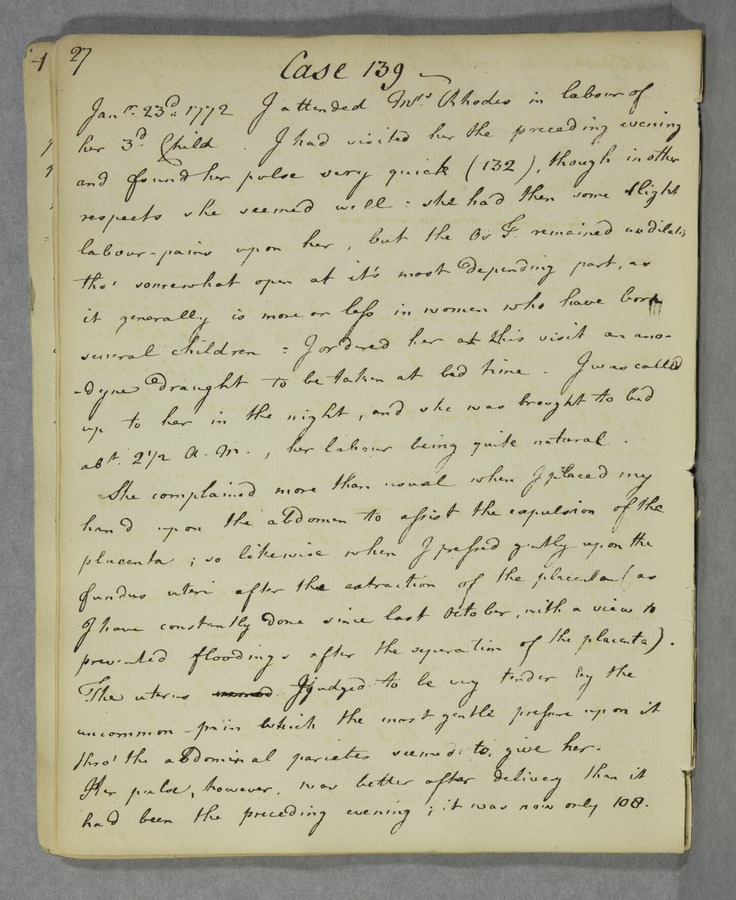 27
Case 139
Janry. 23d. 1772 I attended Mrs Rhodes in labour of
her 3d Child. I had visited her the preceding evening
and found her pulse very quick (132), though in other
respects she seemed well: she had then some slight
labour-pains upon her, but the Os T. remained undilated
tho' somewhat open at it's most depending part, as
it generally is more or less in women who have born
several children: I ordered her at this visit an ano-
-dyne draught to be taken at bed time. I was called
up to her in the night, and she was brought to bed
abt. 2 1/2 A. M., her labour being quite natural.
She complained more than usual when I placed my
hand upon the abdomen to assist the expulsion of the
placenta; so likewise when I pressed gently upon the
fundus uteri after the extraction of the placenta (as
I have constantly done since last October, with a view to
prevented floodings after the separation of the placenta).
The uterus I judged to be very tender by the
uncommon pain which the most gentle pressure upon it
thro' the abdominal parietes seemed to give her.
Her pulse, however, was better after delivery than it
had been the preceding evening; it was now only 108.